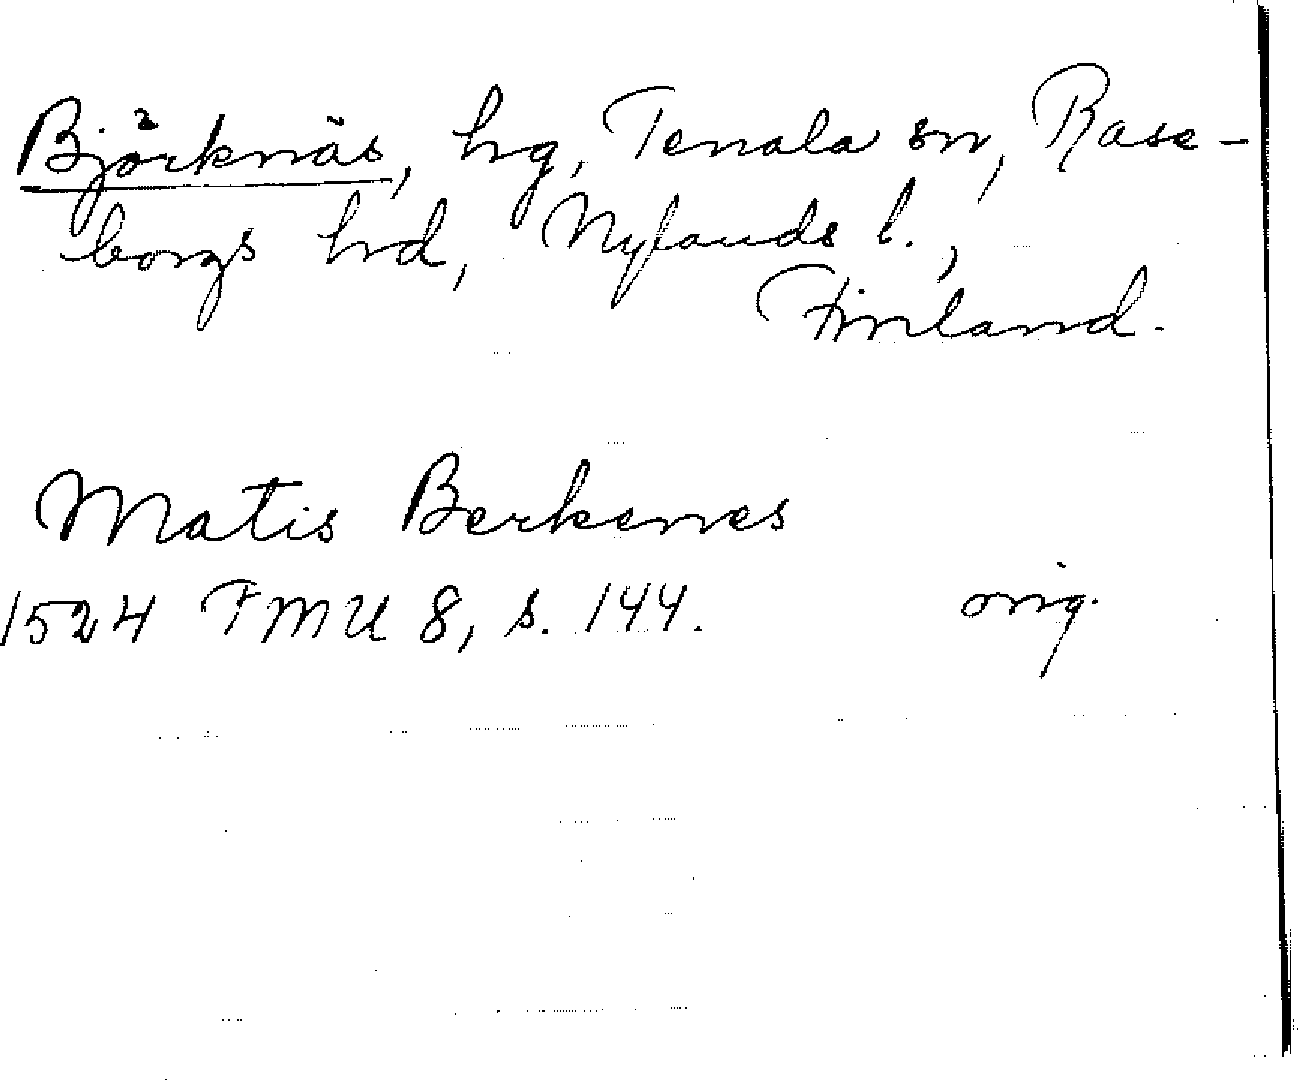 Björknäs, hg, Tenala sn, Rase-
borgs hrd, Nylands l.,
Finland.
Matis Berkenes
1524 FMU 8, s. 144. orig.